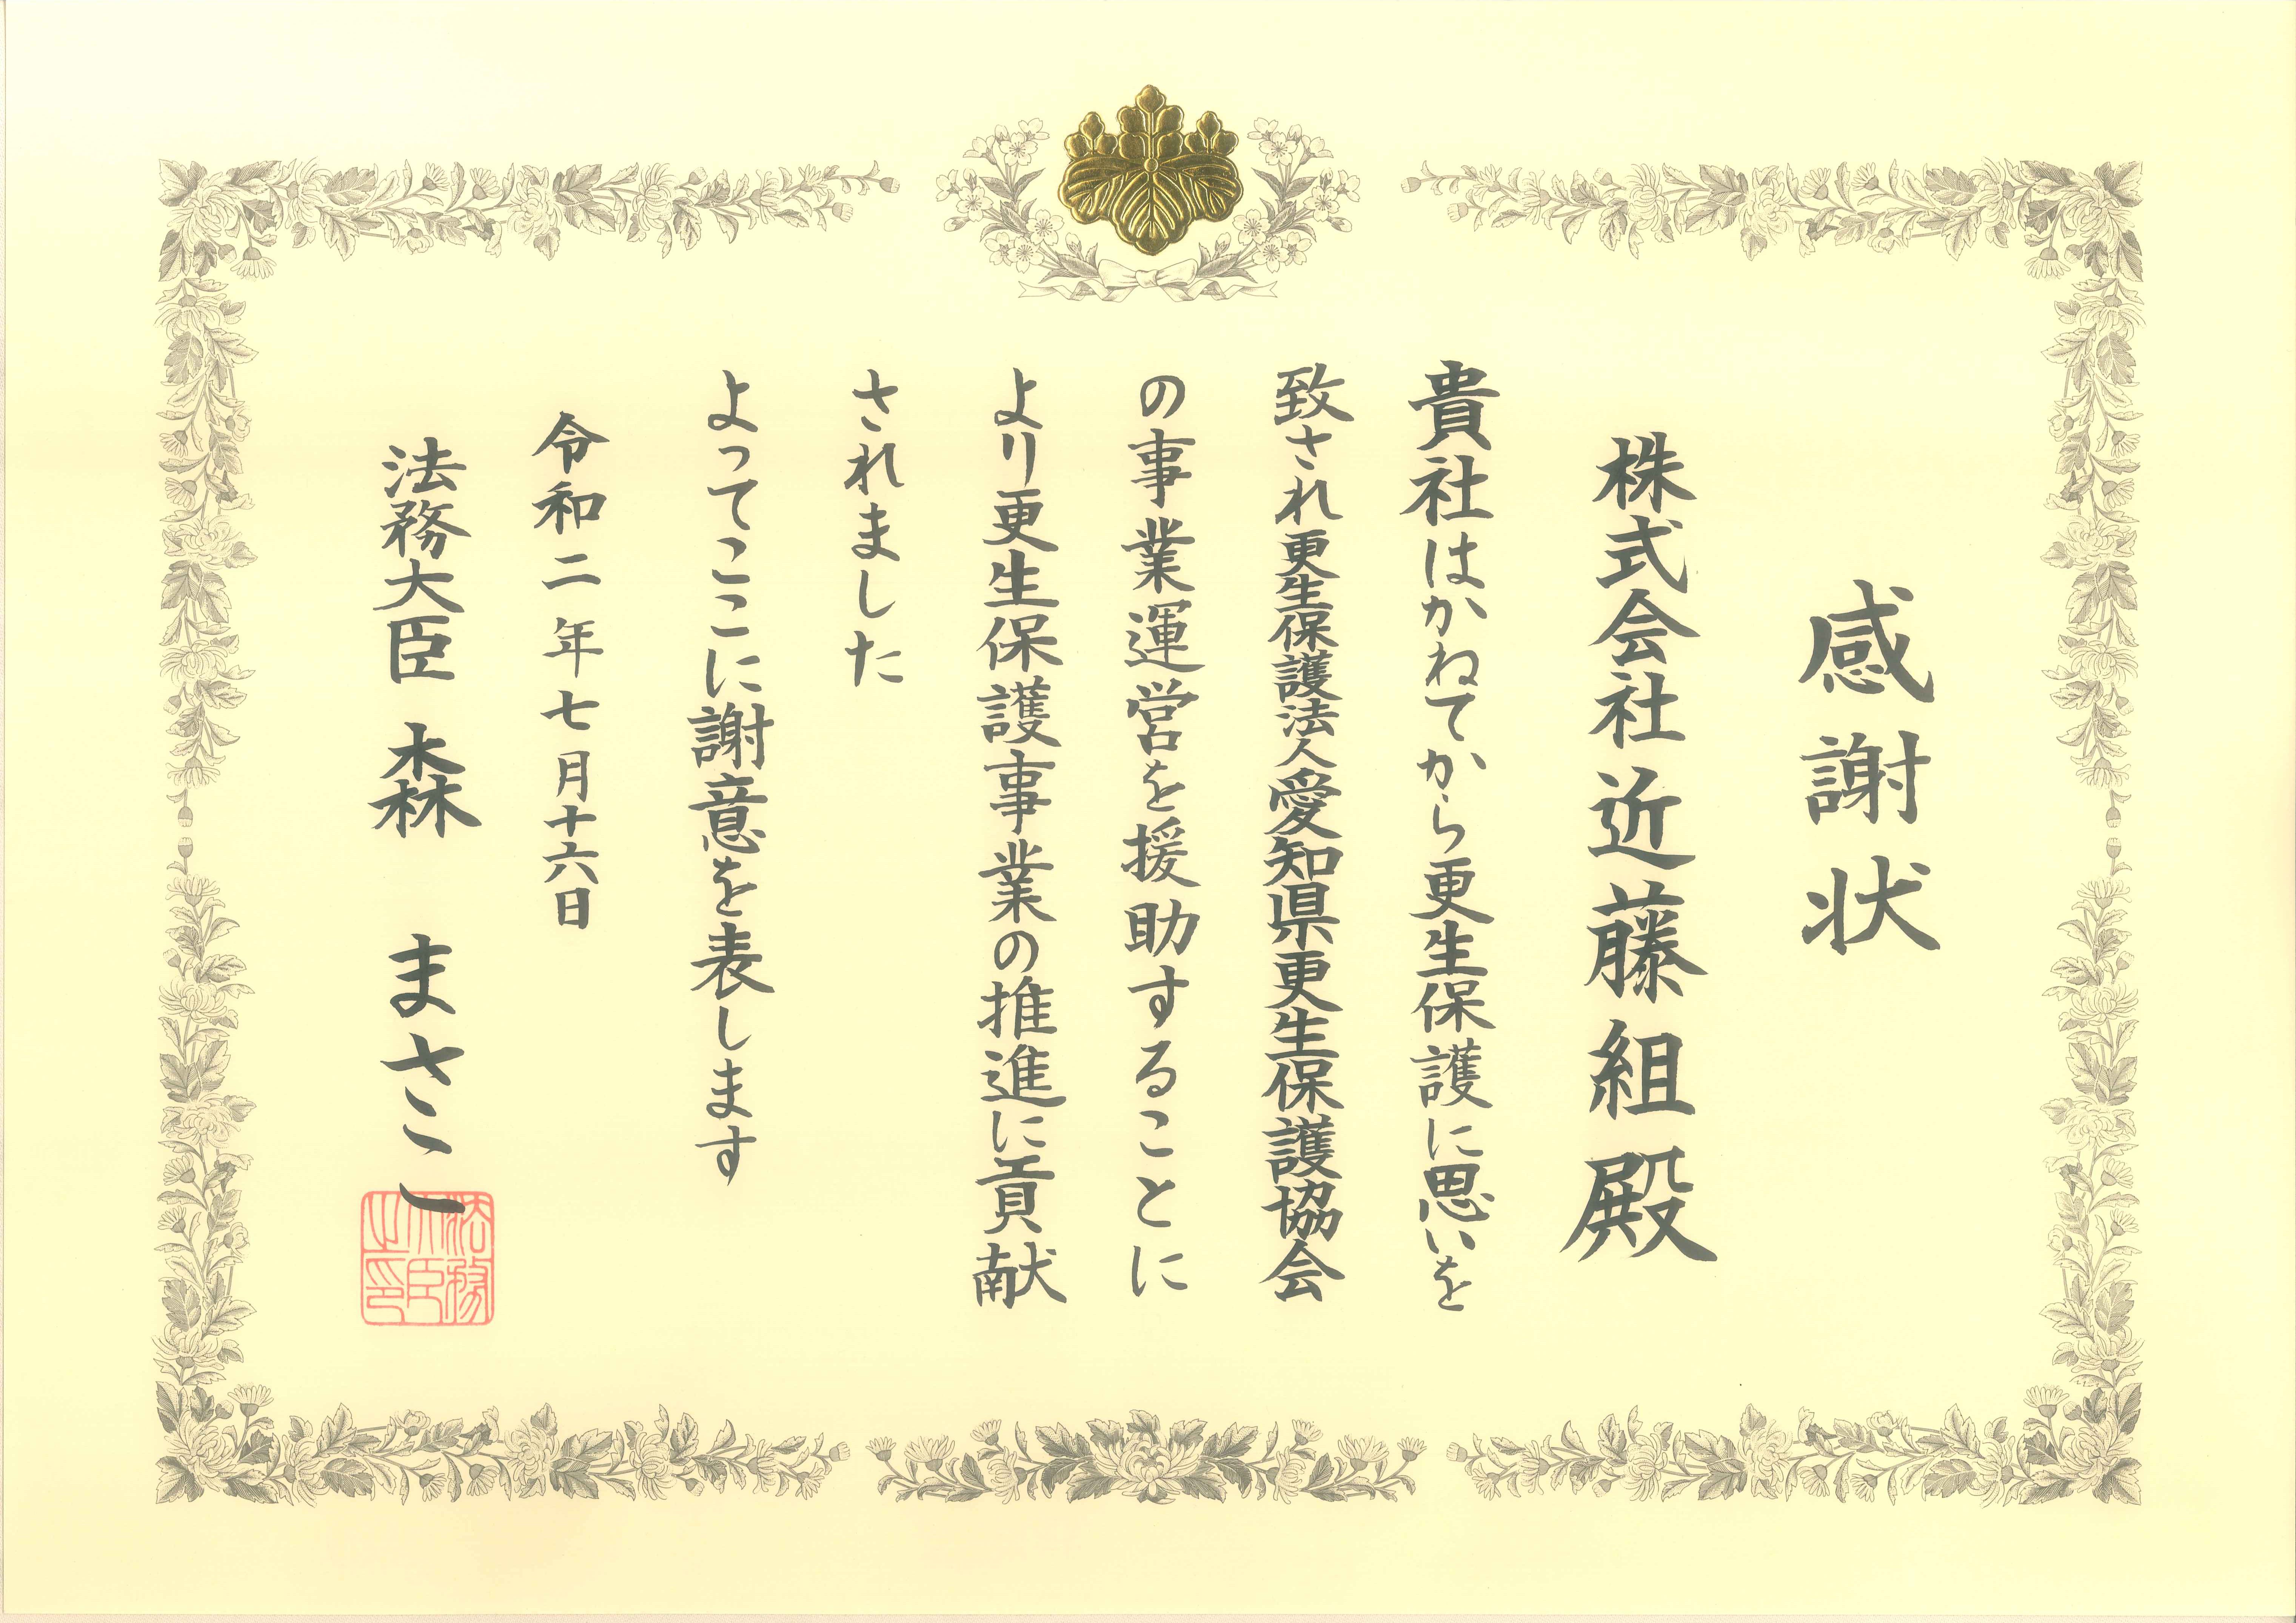 感謝状
株式会社近藤組殿
貴社はかねてから更生保護に思いを
致され更生保護法人愛知県更生保護協会
の事業運営を援助することに
より更生保護事業の推進に貢献
されました
よってここに謝意を表します
令和二年七月十六日
法務大臣 森 まさこ
法務大臣之印